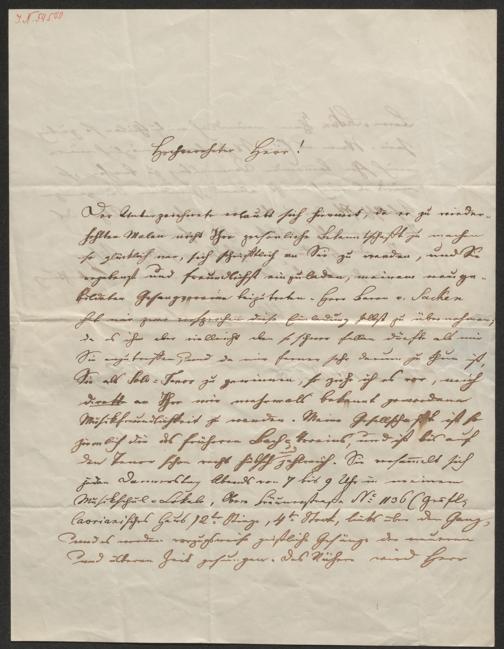 J.N. 54580
Hochverehrter Herr!
Der Unterzeichnete erlaubt sich hiermit, da er zu wieder-
holten Malen nicht Ihre persönliche Bekanntschaft zu machen
so glücklich war, sich schriftlich an Sie zu wenden, und Sie
ergebenst und freundlichst einzuladen, meinem neu ge-
bildeten Gesangsvereine beizutreten. Herr Baron v. Sacken
hat mir zwar versprochen diese Einladung selbst zu übernehmen;
da es ihm aber vielleicht eben so schwer fallen dürfte als mir
Sie anzutreffen, und da mir ferner sehr darum zu thun ist,
Sie als Solo-Tenor zu gewinnen, so zieh ich es vor, mich
direkt an Ihre mir mehrmals bekannt gewordene
Musikfreundlichkeit zu wenden. Meine Gesellschaft ist so
ziemlich die des früheren Bach-Vereins, und ist bis auf
den Tenor schon recht hübsch zahlreich. Sie versammelt sich
jeden Donnerstag Abends von 7 bis 9 Uhr in meinem
Musikschul-Lokale, Obere No 1136 (gräfl.
Haus, 2te Stiege, 4ter Stock, links über den Gang,
und es werden vorzugsweise geistliche Gesänge der neueren
und älteren Zeit gesungen. Das Nähere wird Herr